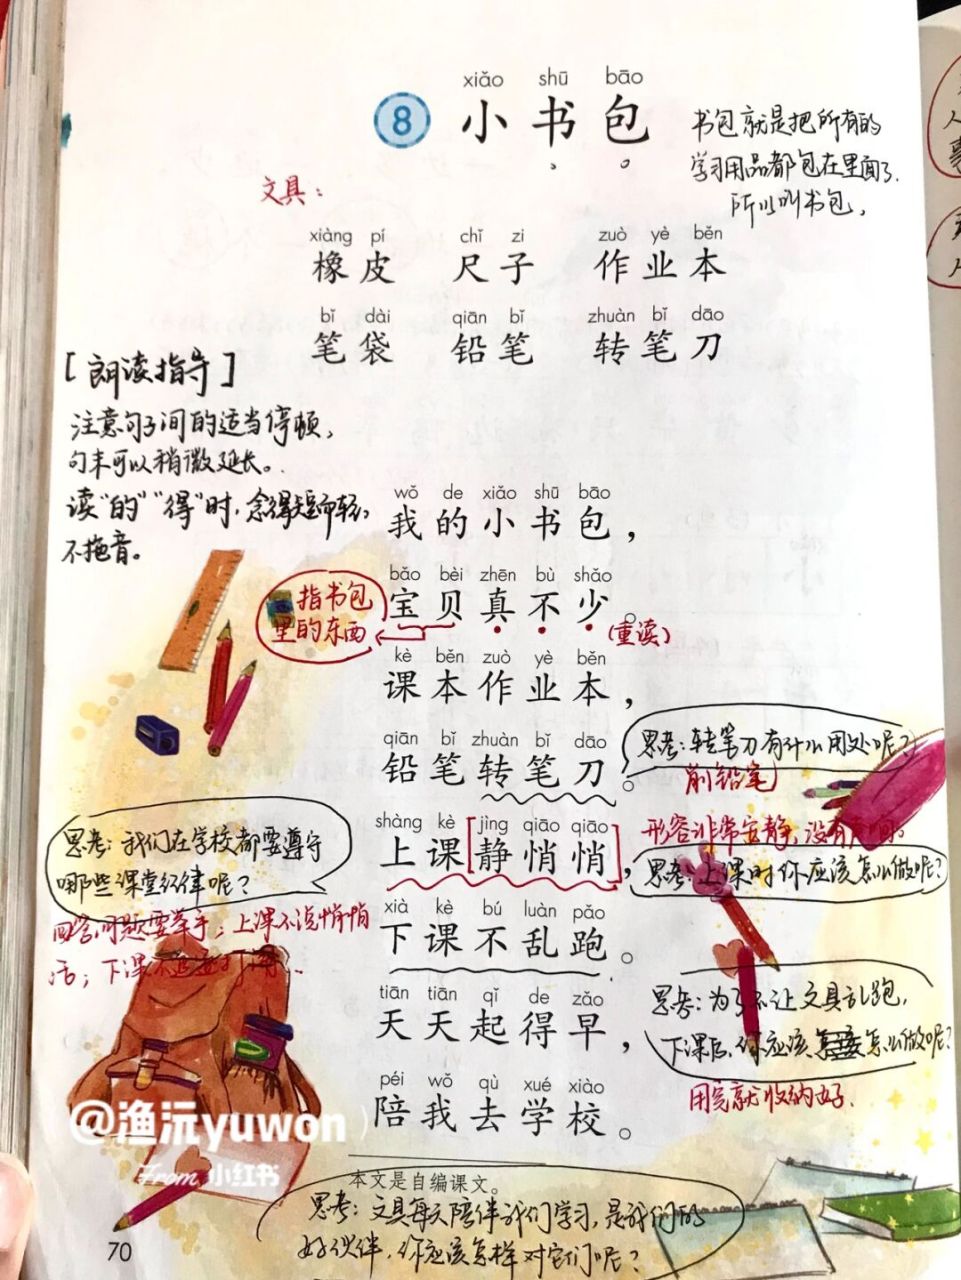 xiǎo shū bāo
8 小书包
书包就是把所有的
学习用品都包在里面了.
所以叫书包,
文具:
xiàng pí chǐ zi zuò yè běn
橡皮 尺子 作业本
bǐ dài qiān bǐ zhuàn bǐ dāo
笔袋 铅笔 转笔刀
[朗读指导]
注意句子间的适当停顿,
句末可以稍微延长。
读"的""得"时,念得短而轻,
不拖音。
wǒ de xiǎo shū bāo
我的小书包,
bǎo bèi zhēn bù shǎo
宝贝真不少。
指书包
里的东西
(重读)
kè běn zuò yè běn
课本作业本,
qiān bǐ zhuàn bǐ dāo
铅笔转笔刀。
思考:转笔刀有什么用处呢?
削铅笔
shàng kè jìng qiāo qiāo
上课[静悄悄],
形容非常安静,没有声响。
思考:上课时你应该怎么做呢?
思考:我们在学校都要遵守
哪些课堂纪律呢?
回答问题要举手;上课不说悄悄
话;下课不追逐打
xià kè bú luàn pǎo
下课不乱跑。
tiān tiān qǐ de zǎo
天天起得早,
思考:为了不让文具乱跑,
下课后,你应该怎么做呢?
用完就收纳好.
péi wǒ qù xué xiào
陪我去学校。
@渔沅yuwon
From 小红书
本文是自编课文。
思考:文具每天陪伴我们学习,是我们的
好伙伴,你应该怎样对它们呢?
70